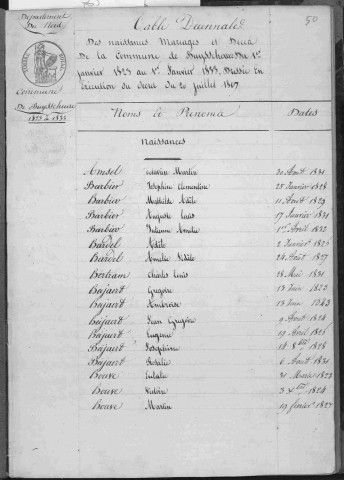 Département
Du Nord
Commune
De Buysscheure
1823 à 1833
50
Table Décennale
Des naissances Mariages et Décès
De la Commune de Buysscheure Du 1er
janvier 1823 au 1er Janvier 1833, Dressée En
Exécution du Décret Du 20 juillet 1807
Noms et Prénoms Dates
Naissances
Amsel Martin 30 Août 1831
Barbier Josephine Clementine 25 Janvier 1828
Barbier Mathilde Adèle 11 Août 1829
Barbier Auguste Louis 17 Janvier 1831
Barbier Julienne Amélie 1er Avril 1832
Bardel Adèle 2 Janvier 1825
Bardel Amélie 24 Août 1827
Bertram Charles Louis 28 Mai 1831
Bajaert Grégoire 13 Juin 1823
Bajaert Ambroise 13 Juin 1823
Bajaert Jean Grégoire 9 Août 1824
Bajaert Eugénie 29 Avril 1826
Bajaert 14 8bre 1828
Bajaert Rosalie 6 Août 1831
Bouve Eulalie 31 Mars 1823
Bouve 1824
Bouve Martin 19 février 1827